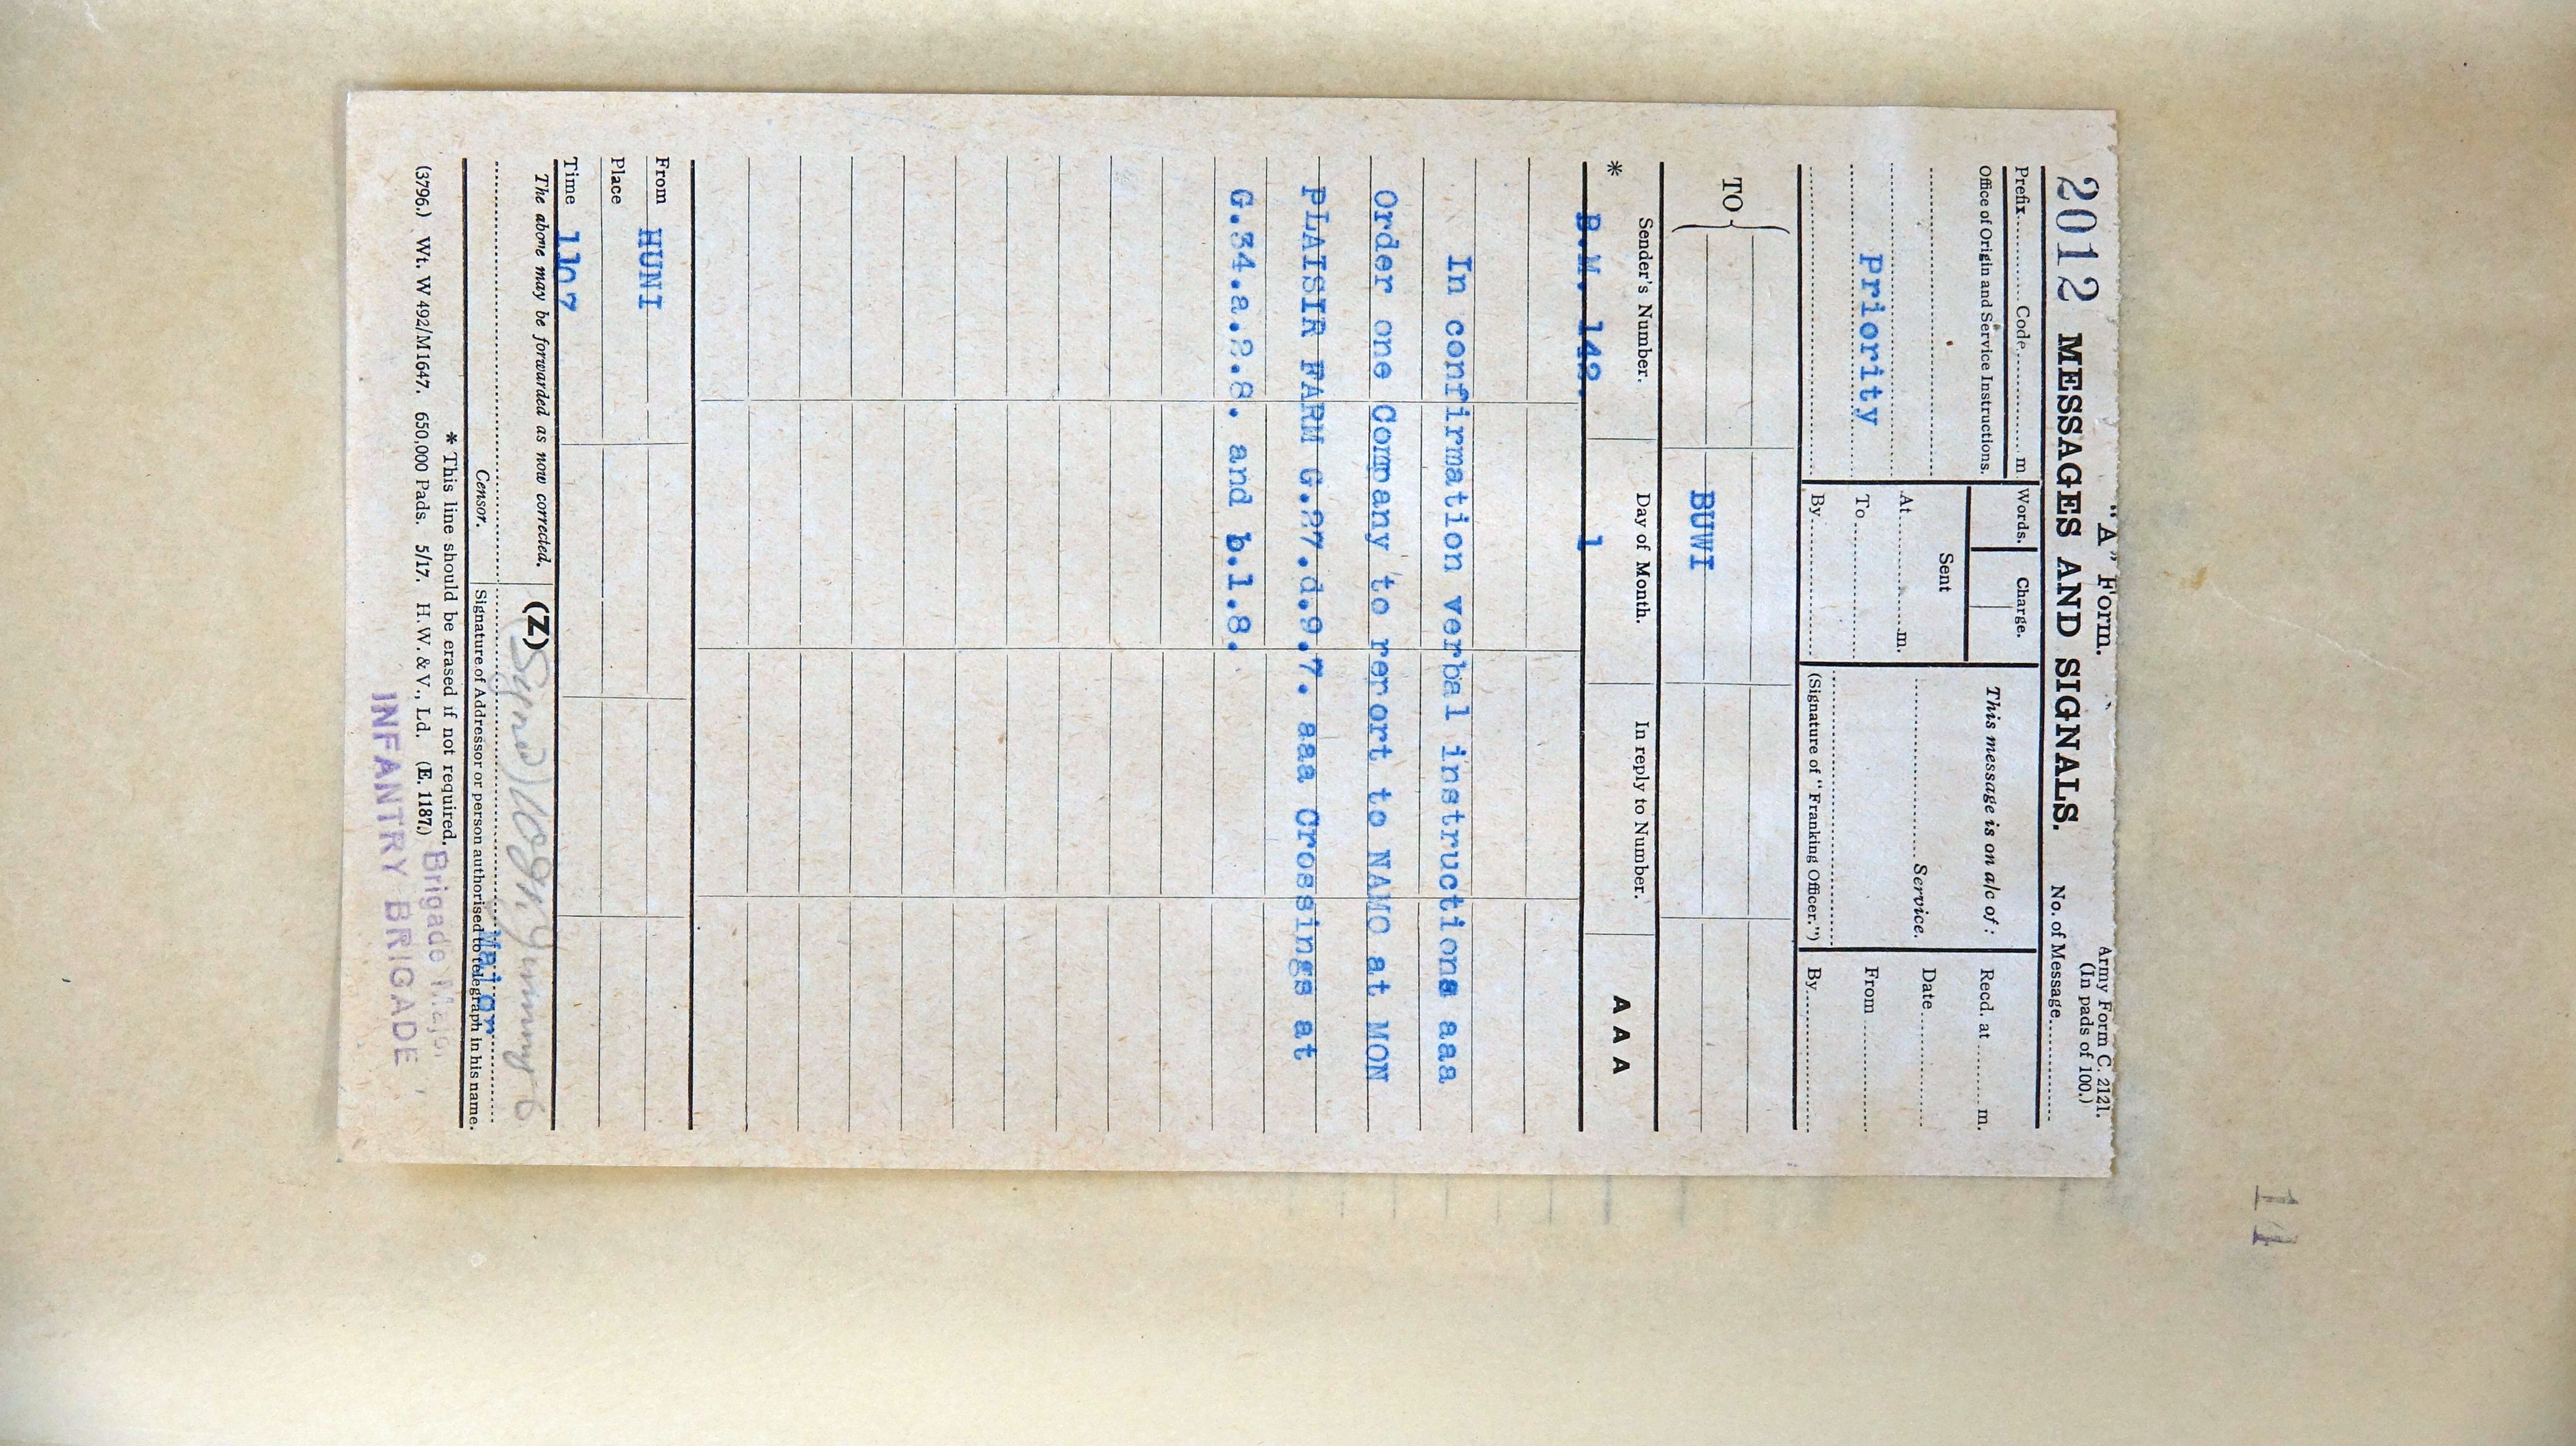 "A" Form.
Army Form C. 2121.
(In pads of 100.)
2012 MESSAGES AND SIGNALS.
No. of Message
Prefix Code m
Words. Charge.
Office of Origin and Service Instructions.
Priority
Sent
At m.
To
By
This message is on a/c of :
Service.
(Signature of "Franking Officer.")
Recd. at m.
Date
From
By
TO
BUWI
* Sender's Number. Day of Month. In reply to Number. A A A
B.M. 142. 1
In confirmation verbal instructions aaa
Order one Company to rerort to NAMO at MON
PLAISIR FARM G.27.d.9.7. aaa Crossings at
G.34.a.2.8. and b.1.8.
From HUNI
Place
Time 1107
The above may be forwarded as now corrected. (Z)
Censor.
Signature of Addressor or person authorised to telegraph in his name.
Major
* This line should be erased if not required.
(3796.) Wt. W 492/M1647. 650,000 Pads. 5/17. H. W. & V., Ld. (E. 1187.)
Brigade Major
INFANTRY BRIGADE
11